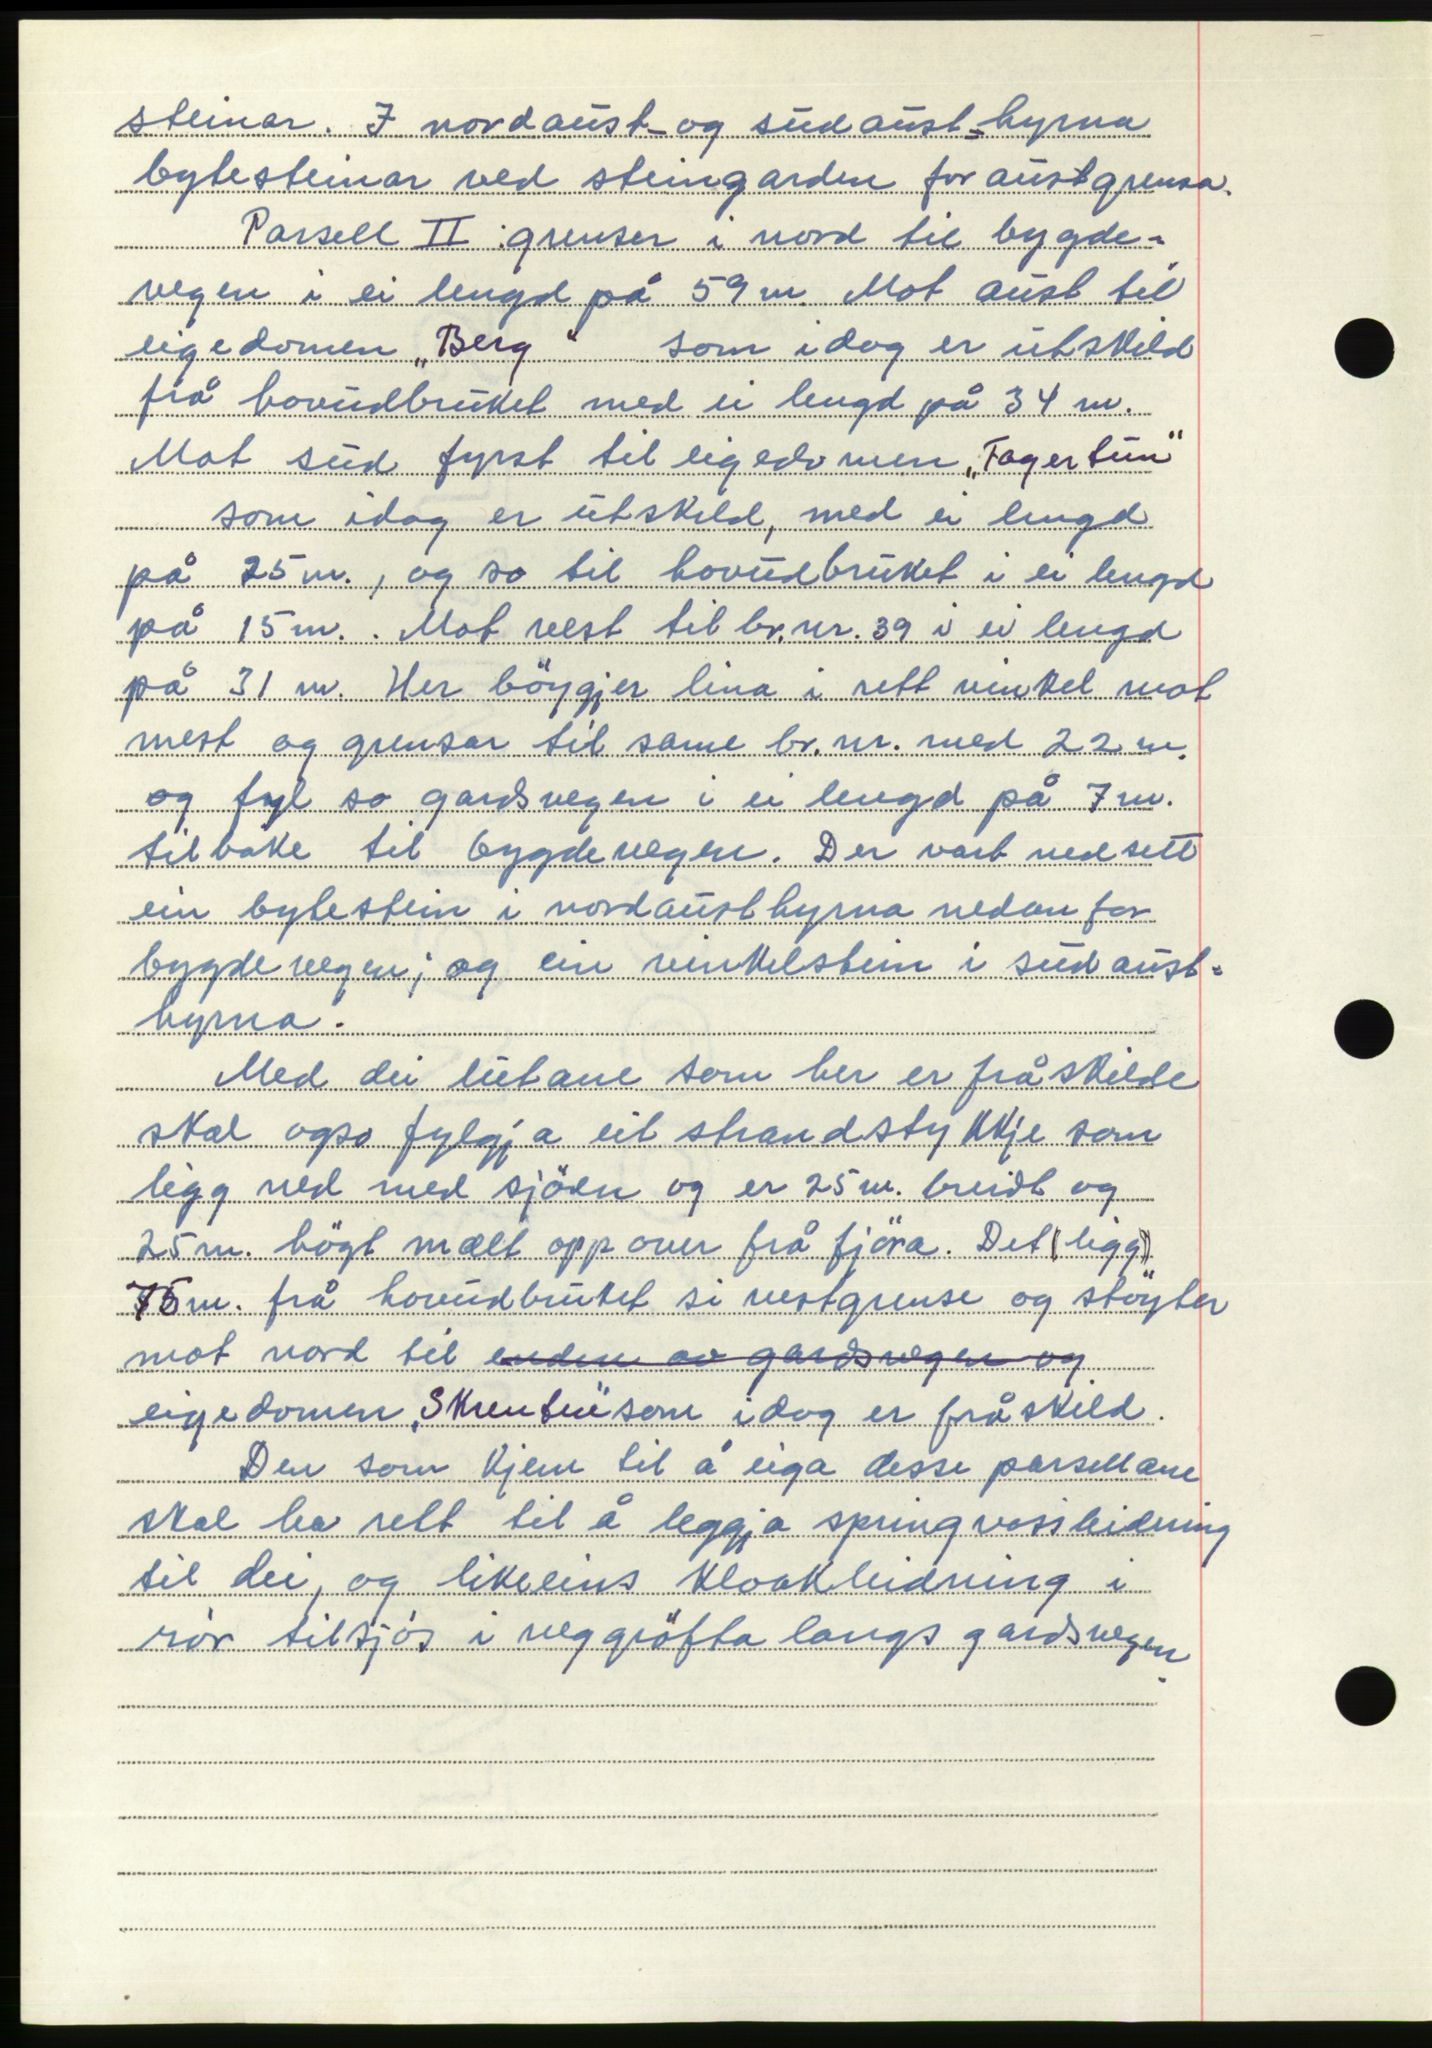 steinar. I nordaust- og sudaust-hyrna
bytesteinar ved steingarden for austgrensa.
Parsell II: grenser i nord til bygde-
vegen i ei lengd på 59 m. Mot aust til
eigedomen „Berg" som idag er utskild
frå hovudbruket med ei lengd på 34 m.
Mot sud fyrst til eigedomen „Fagertun"
som idag er utskild, med ei lengd
på 25 m., og so til hovudbruket i ei lengd
på 15 m.. Mot vest til br. nr. 39 i ei lengd
på 31 m. Her böygjer lina i rett vinkel mot
mest og grensar til same br. nr. med 22 m.
og fyl so gardsvegen i ei lengd på 7 m.
tilbake til bygdevegen. Der vart nedsett
ein bytestein i nordausthyrna nedanfor
bygdevegen; og ein vinkelstein i sudaust-
hyrna.
Med dei lutane som her er fråskilde
skal ogso fylgja eit strandstykkje som
ligg ned med sjöen og er 25 m. breidt og
25 m. högt mælt oppover frå fjöra. Det (ligg)
75 m. frå hovudbruket si vestgrense og stöyter
mot nord til enden av gardsvegen og
eigedomen „Skrenten" som idag er fråskild.
Den som kjem til å eiga desse parsellane
skal ha rett til å leggja springvassleidning
til dei, og likeeins kloakleidning i
rör tilsjös i veggröfta langs gardsvegen.